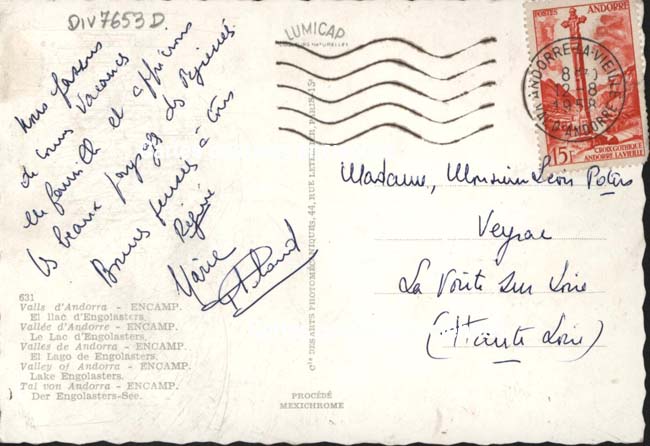 DIV 7653 D
LUMICAP
COULEURS NATURELLES
POSTES ANDORRE
ANDORRE-LA-VIEILLE
12-8
1958
VAL D'ANDORRE
CROIX GOTHIQUE
15F ANDORRE LA VIEILLE
Nous passons
de bonnes vacances
en famille et apprécions
les beaux paysages des Pyrénées
Bonnes pensées à tous
Régine
Marie
Madame, Monsieur Léon
Veyrac
La Voûte sur Loire
(Haute Loire)
631
Valls d'Andorra - ENCAMP.
El llac d'Engolasters.
Vallée d'Andorre - ENCAMP.
Le Lac d'Engolasters.
Valles de Andorra - ENCAMP.
El Lago de Engolasters.
Valley of Andorra - ENCAMP.
Lake Engolasters.
Tal von Andorra - ENCAMP.
Der Engolasters-See.
Cie DES ARTS PHOTOMÉCANIQUES, 44, RUE LETELLIER, PARIS-15e
PROCÉDÉ
MEXICHROME